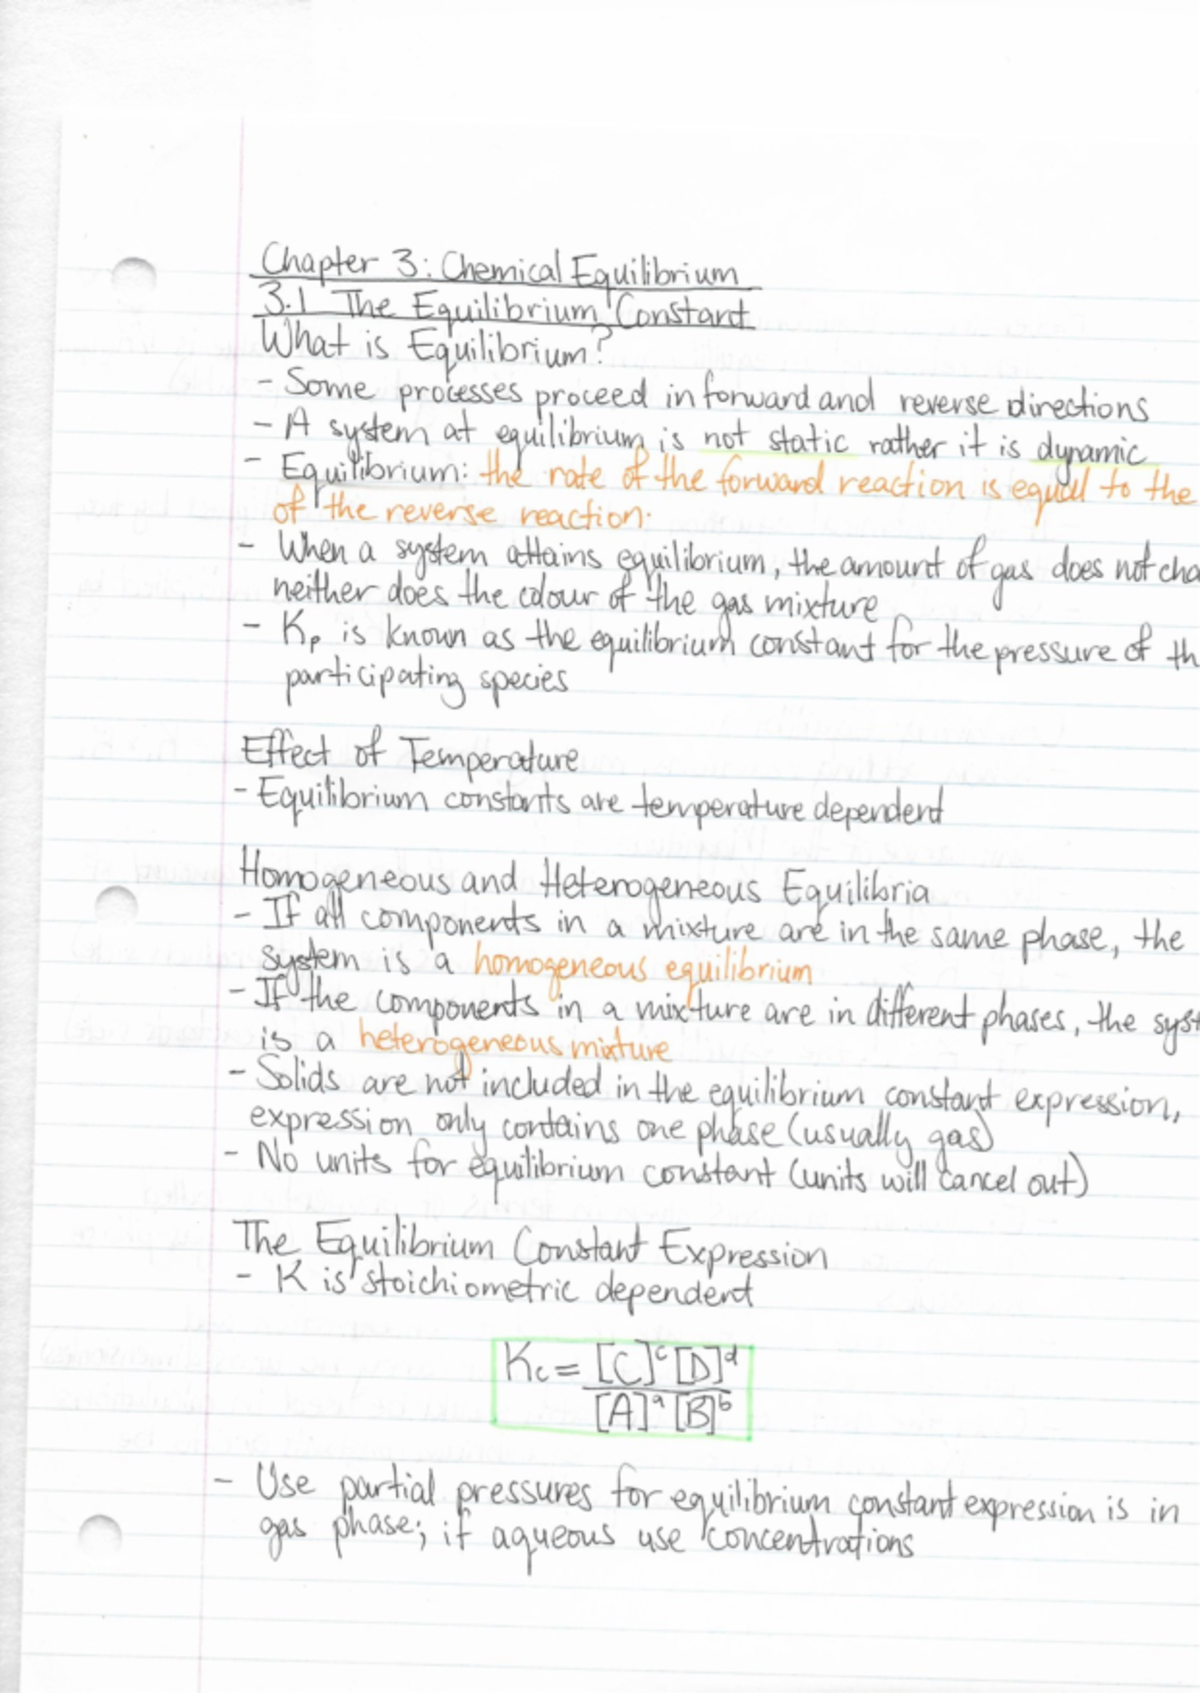 Chapter 3: Chemical Equilibrium
3.1 The Equilibrium Constant
What is Equilibrium?
- Some processes proceed in forward and reverse directions
- A system at equilibrium is not static rather it is dynamic
- Equilibrium: the rate of the forward reaction is equal to the
of the reverse reaction.
- When a system attains equilibrium, the amount of gas does not cha
neither does the colour of the gas mixture
- Kp is known as the equilibrium constant for the pressure of th
participating species
Effect of Temperature
- Equilibrium constants are temperature dependent
Homogeneous and Heterogeneous Equilibria
- If all components in a mixture are in the same phase, the
system is a homogeneous equilibrium
- If the components in a mixture are in different phases, the syst
is a heterogeneous mixture
- Solids are not included in the equilibrium constant expression,
expression only contains one phase (usually gas)
- No units for equilibrium constant (units will cancel out)
The Equilibrium Constant Expression
- K is stoichiometric dependent
Kc = [C]ᶜ[D]ᵈ
[A]ᵃ[B]ᵇ
- Use partial pressures for equilibrium constant expression is in
gas phase; if aqueous use concentrations